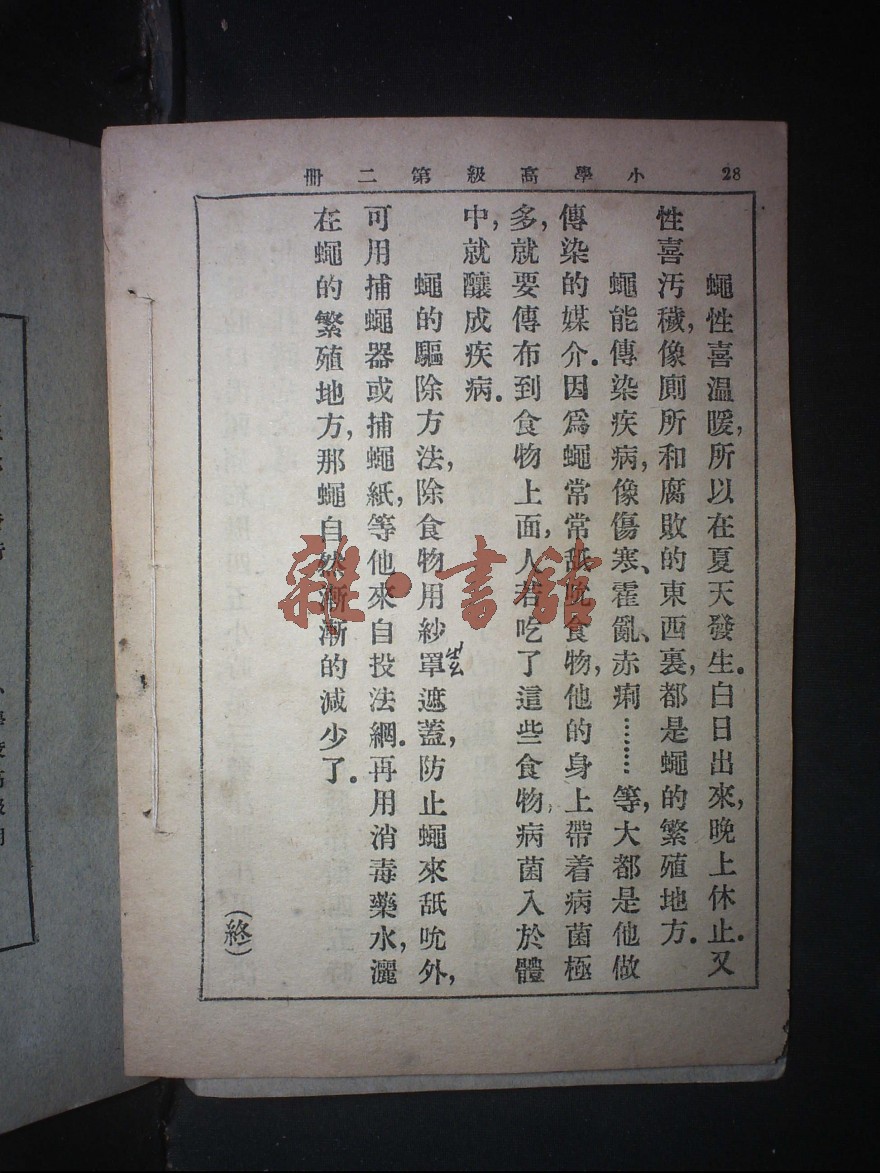 小學高級第二冊 28
蠅性喜溫暖，所以在夏天發生。白日出來，晚上休止。又
性喜汚穢，像廁所和腐敗的東西裏，都是蠅的繁殖地方。
蠅能傳染疾病，像傷寒、霍亂、赤痢……等，大都是他做
傳染的媒介。因爲蠅常常舐吮食物，他的身上帶着病菌極
多，就要傳布到食物上面，人若吃了這些食物，病菌入於體
中，就釀成疾病。
蠅的驅除方法，除食物用紗罩遮蓋，防止蠅來舐吮外，
可用捕蠅器或捕蠅紙，等他來自投法網。再用消毒藥水，灑
在蠅的繁殖地方，那蠅自然漸漸的減少了。
（終）
雜·書館